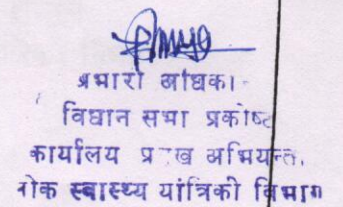 प्रभारी अधिका
विधान सभा प्रकोष्ट
कार्यालय प्रमुख अभियन्ता
लोक स्वास्थ्य यांत्रिकी विभाग